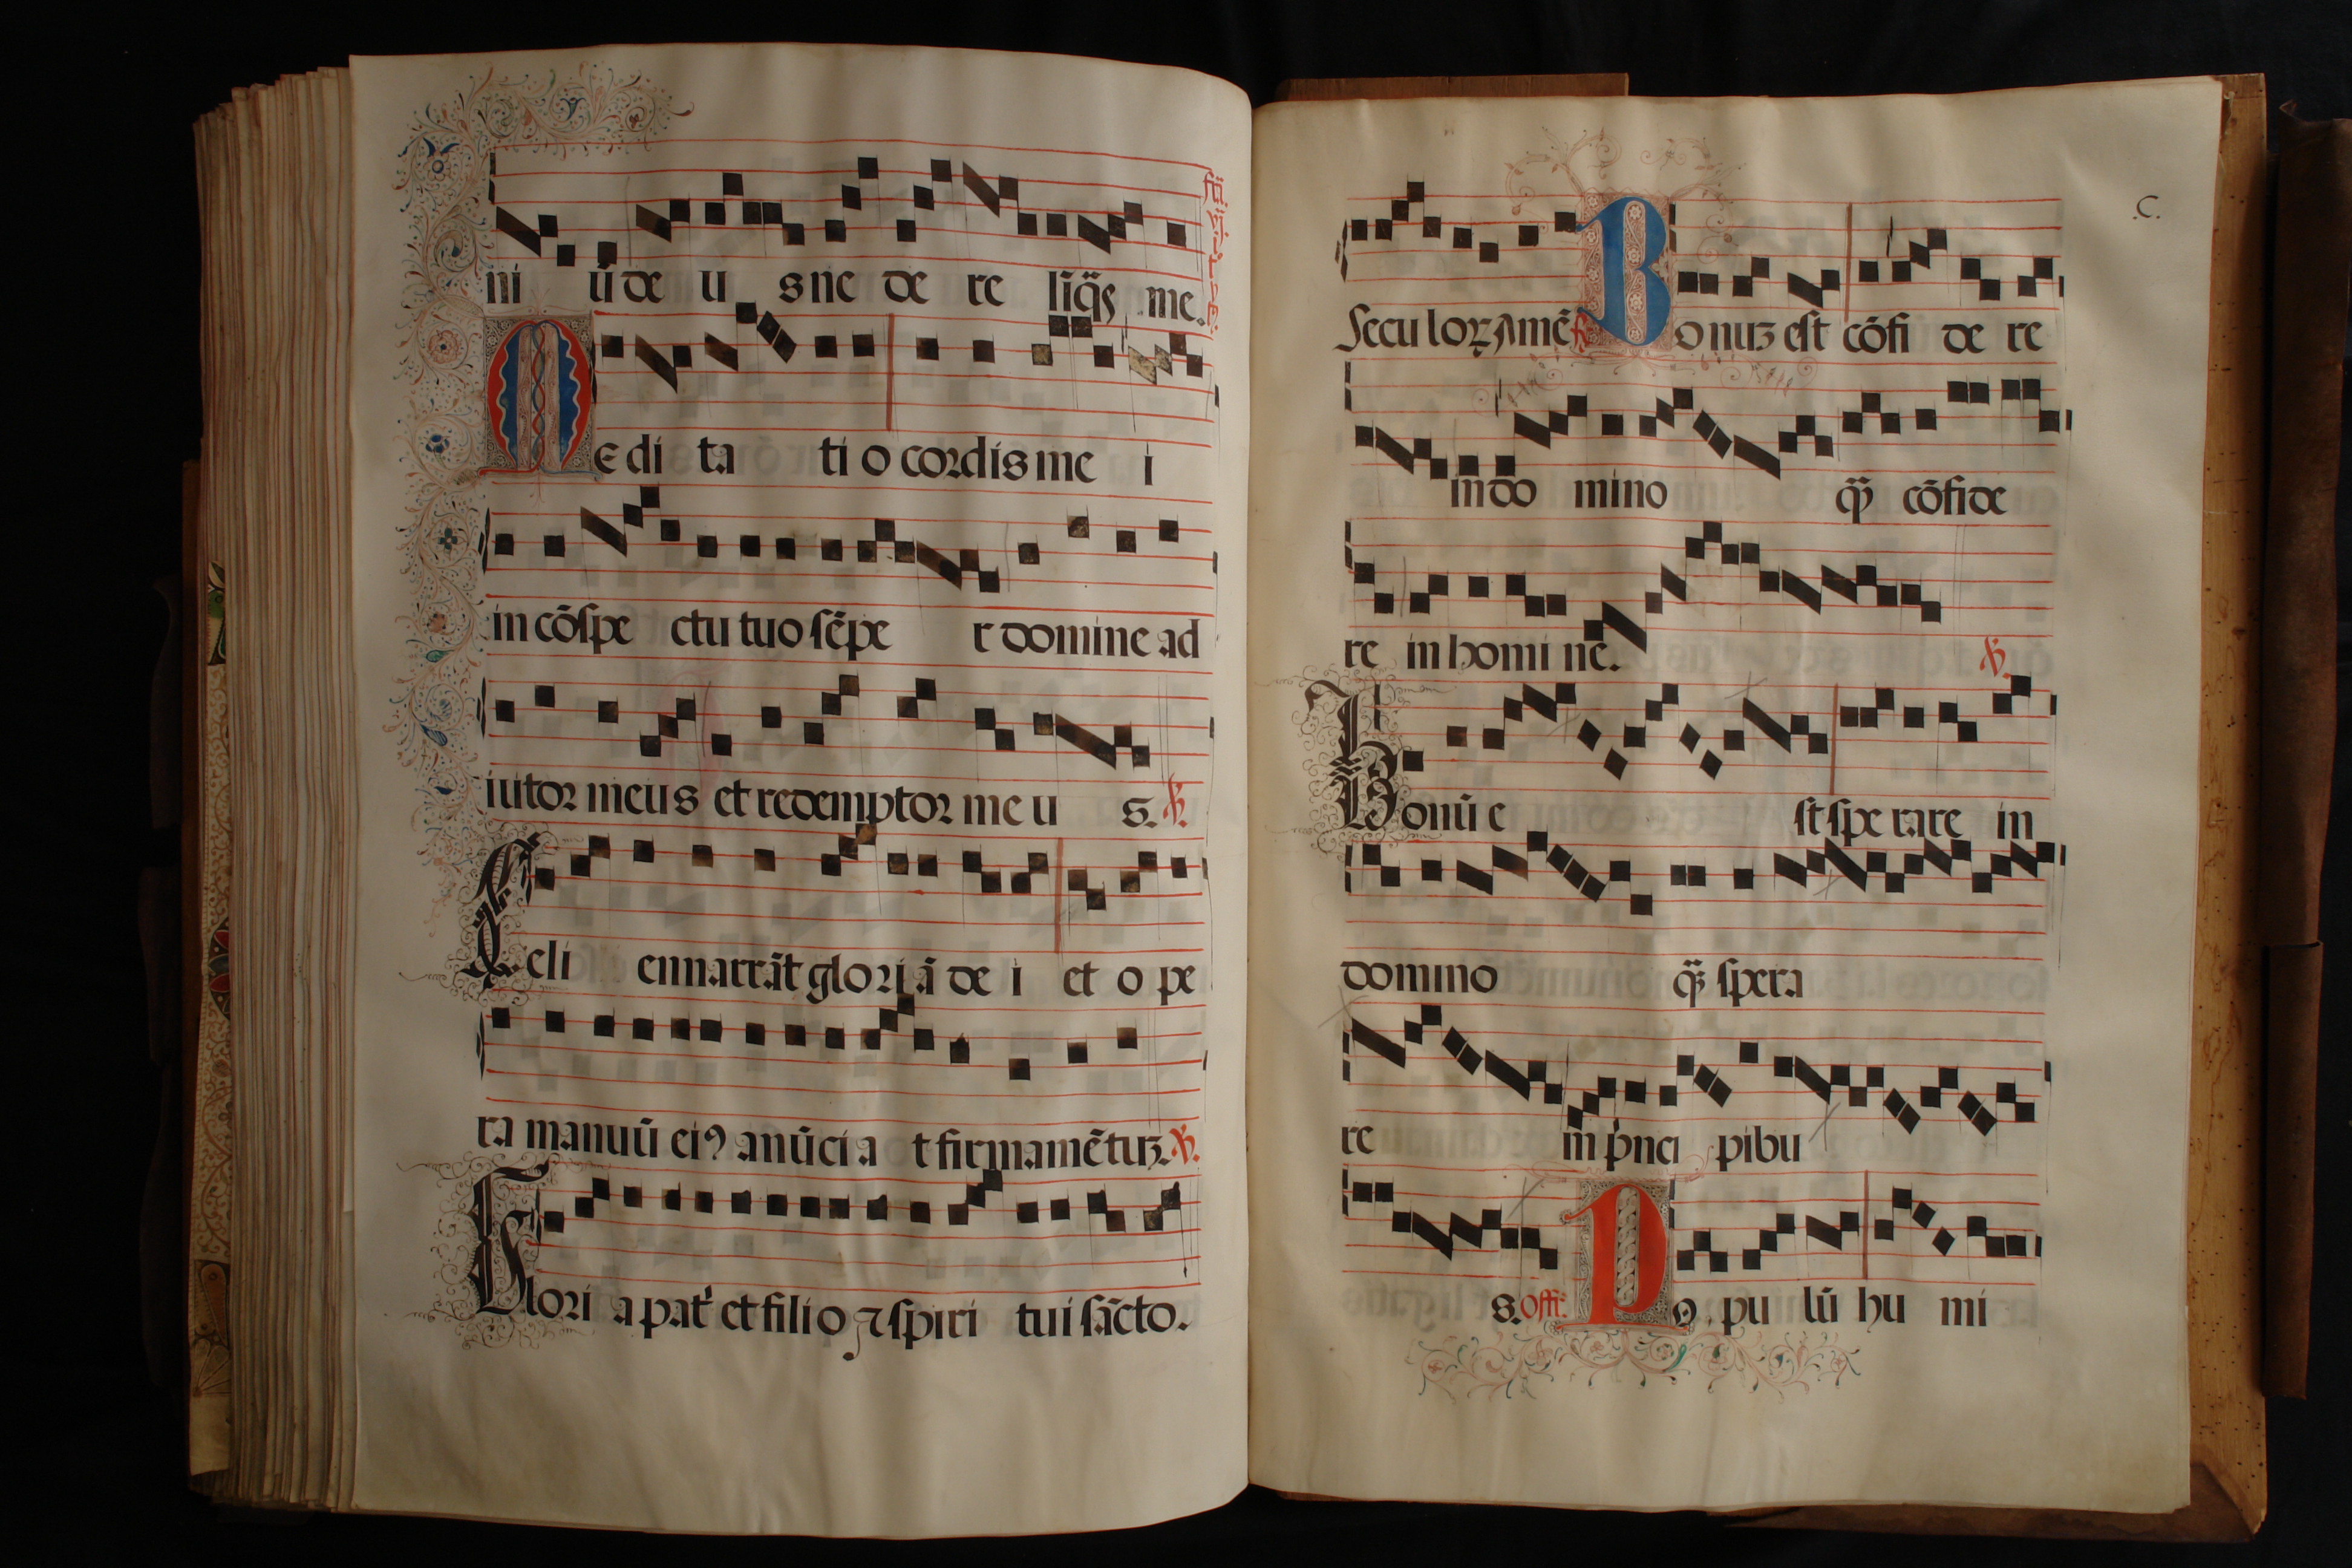 ni ū de u s ne de re liq̄s me.
Medi ta ti o cordis me i
in cōspe ctu tuo sēpe r domine ad
iutor meus et redemptor me u s. ℣.
Celi ennarrāt glori ā de i et o pe
ra manuū eiꝰ anūci a t firmamētuȝ. ℣.
Glori a pat' et filio ⁊ spiri tui sācto.
.C.
Seculoꝝ Amē Bonuȝ est cōfi de re
in do mino q̄ȝ cōfide
re in homi ne. ℣.
Bonū e st spe rare in
domino q̄ȝ spera
re in p'nci pibu
s. offr. Po pu lū hu mi